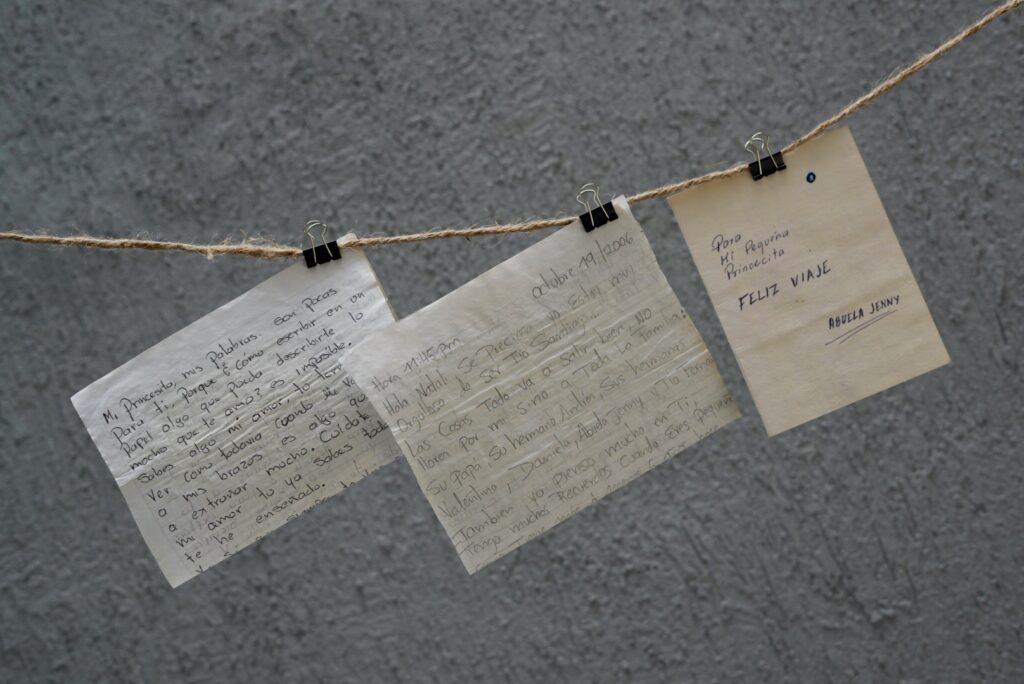 Mi Princesito, mis palabras son pocas
Para ti, Porque es como escribir en un
Papel algo que Puedo describirte lo
mucho que te amo? es imposible.
Sabes algo mi amor, to
Ver como todavia cuando
a mis brazos es algo que
a extrañar mucho. Cuidate
mi amor tu ya Sabes todo
te he enseñado.
y
octubre 19/2006
Hora 11:45 Pm
Hola Natal. Se Preciso yo Estoy muy
Orgulloso de Ser Tio Santiago...
Las Cosas Todo va a Salir bien NO
llores Por mi sino a Toda La familia:
Su Papa, Su hermano Andres, Sus hermanas
Valentina, Daniela, Abuela Jenny y Tia
Tambien yo Pienso mucho en Ti,
Tengo muchos Recuerdos Cuando Eras Pequeña
Para
Mi Pequeña
Princecita
FELIZ VIAJE
ABUELA JENNY